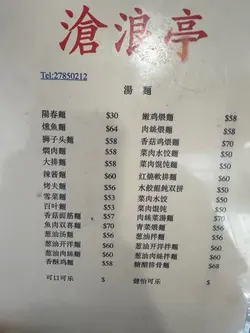 滄浪亭
Tel:27850212
湯麵
陽春麵 $30
燻魚麵 $64
獅子头麵 $58
焗肉麵 $58
大排麵 $58
辣醬麵 $60
烤夫麵 $56
雪菜麵 $53
百叶麵 $53
香菇面筋麵 $57
魚肉双喜麵 $70
葱油汤麵 $56
葱油开洋麵 $60
葱油肉絲麵 $60
香酥鸡麵 $58
可口可乐 $
嫩鸡煨麵 $58
肉絲煨麵 $58
香菇鸡煨麵 $70
菜肉水饺麵 $58
菜肉馄饨麵 $58
红燒軟排麵 $60
水餃餛飩双拼 $50
菜肉水饺 $50
菜肉馄饨 $50
肉絲菜湯麵 $70
青菜煨麵 $56
葱油拌麵 $56
葱油开洋拌麵 $60
葱油肉絲拌麵 $60
糖醋排骨麵 $68
健怡可乐 $